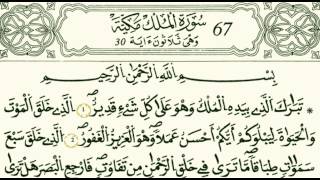 سُورَةُ الْمُلْكِ مَكِّيَّة 67
وَهِيَ ثَلَاثُونَ ءَايَة 30
بِسْمِ اللَّهِ الرَّحْمَٰنِ الرَّحِيمِ
* تَبَارَكَ الَّذِي بِيَدِهِ الْمُلْكُ وَهُوَ عَلَىٰ كُلِّ شَيْءٍ قَدِيرٌ ١ الَّذِي خَلَقَ الْمَوْتَ
وَالْحَيَوٰةَ لِيَبْلُوَكُمْ أَيُّكُمْ أَحْسَنُ عَمَلًا وَهُوَ الْعَزِيزُ الْغَفُورُ ٢ الَّذِي خَلَقَ سَبْعَ
سَمَٰوَٰتٍ طِبَاقًا مَا تَرَىٰ فِي خَلْقِ الرَّحْمَٰنِ مِن تَفَٰوُتٍ فَارْجِعِ الْبَصَرَ هَلْ تَرَىٰ